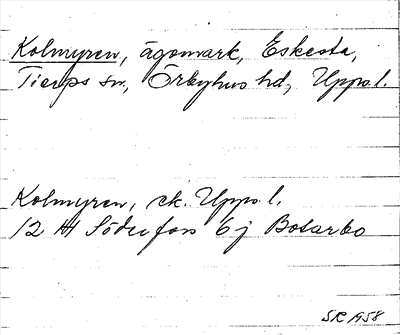 Kolmyren, ägomark, Eskesta,
Tierps sn, Örbyhus hd, Upps. l.
Kolmyren, ek. Upps. l.
12 H Söderfors 6j Botarbo
SR 1958